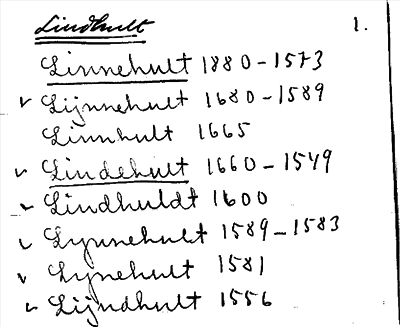 Lindhult 1.
Linnehult 1880-1573
✓ Lijnnehult 1680-1589
Linnhult 1665
✓ Lindehult 1660-1549
✓ Lindhuldt 1600
✓ Lynnehult 1589-1583
✓ Lynehult 1581
✓ Lijndhult 1556